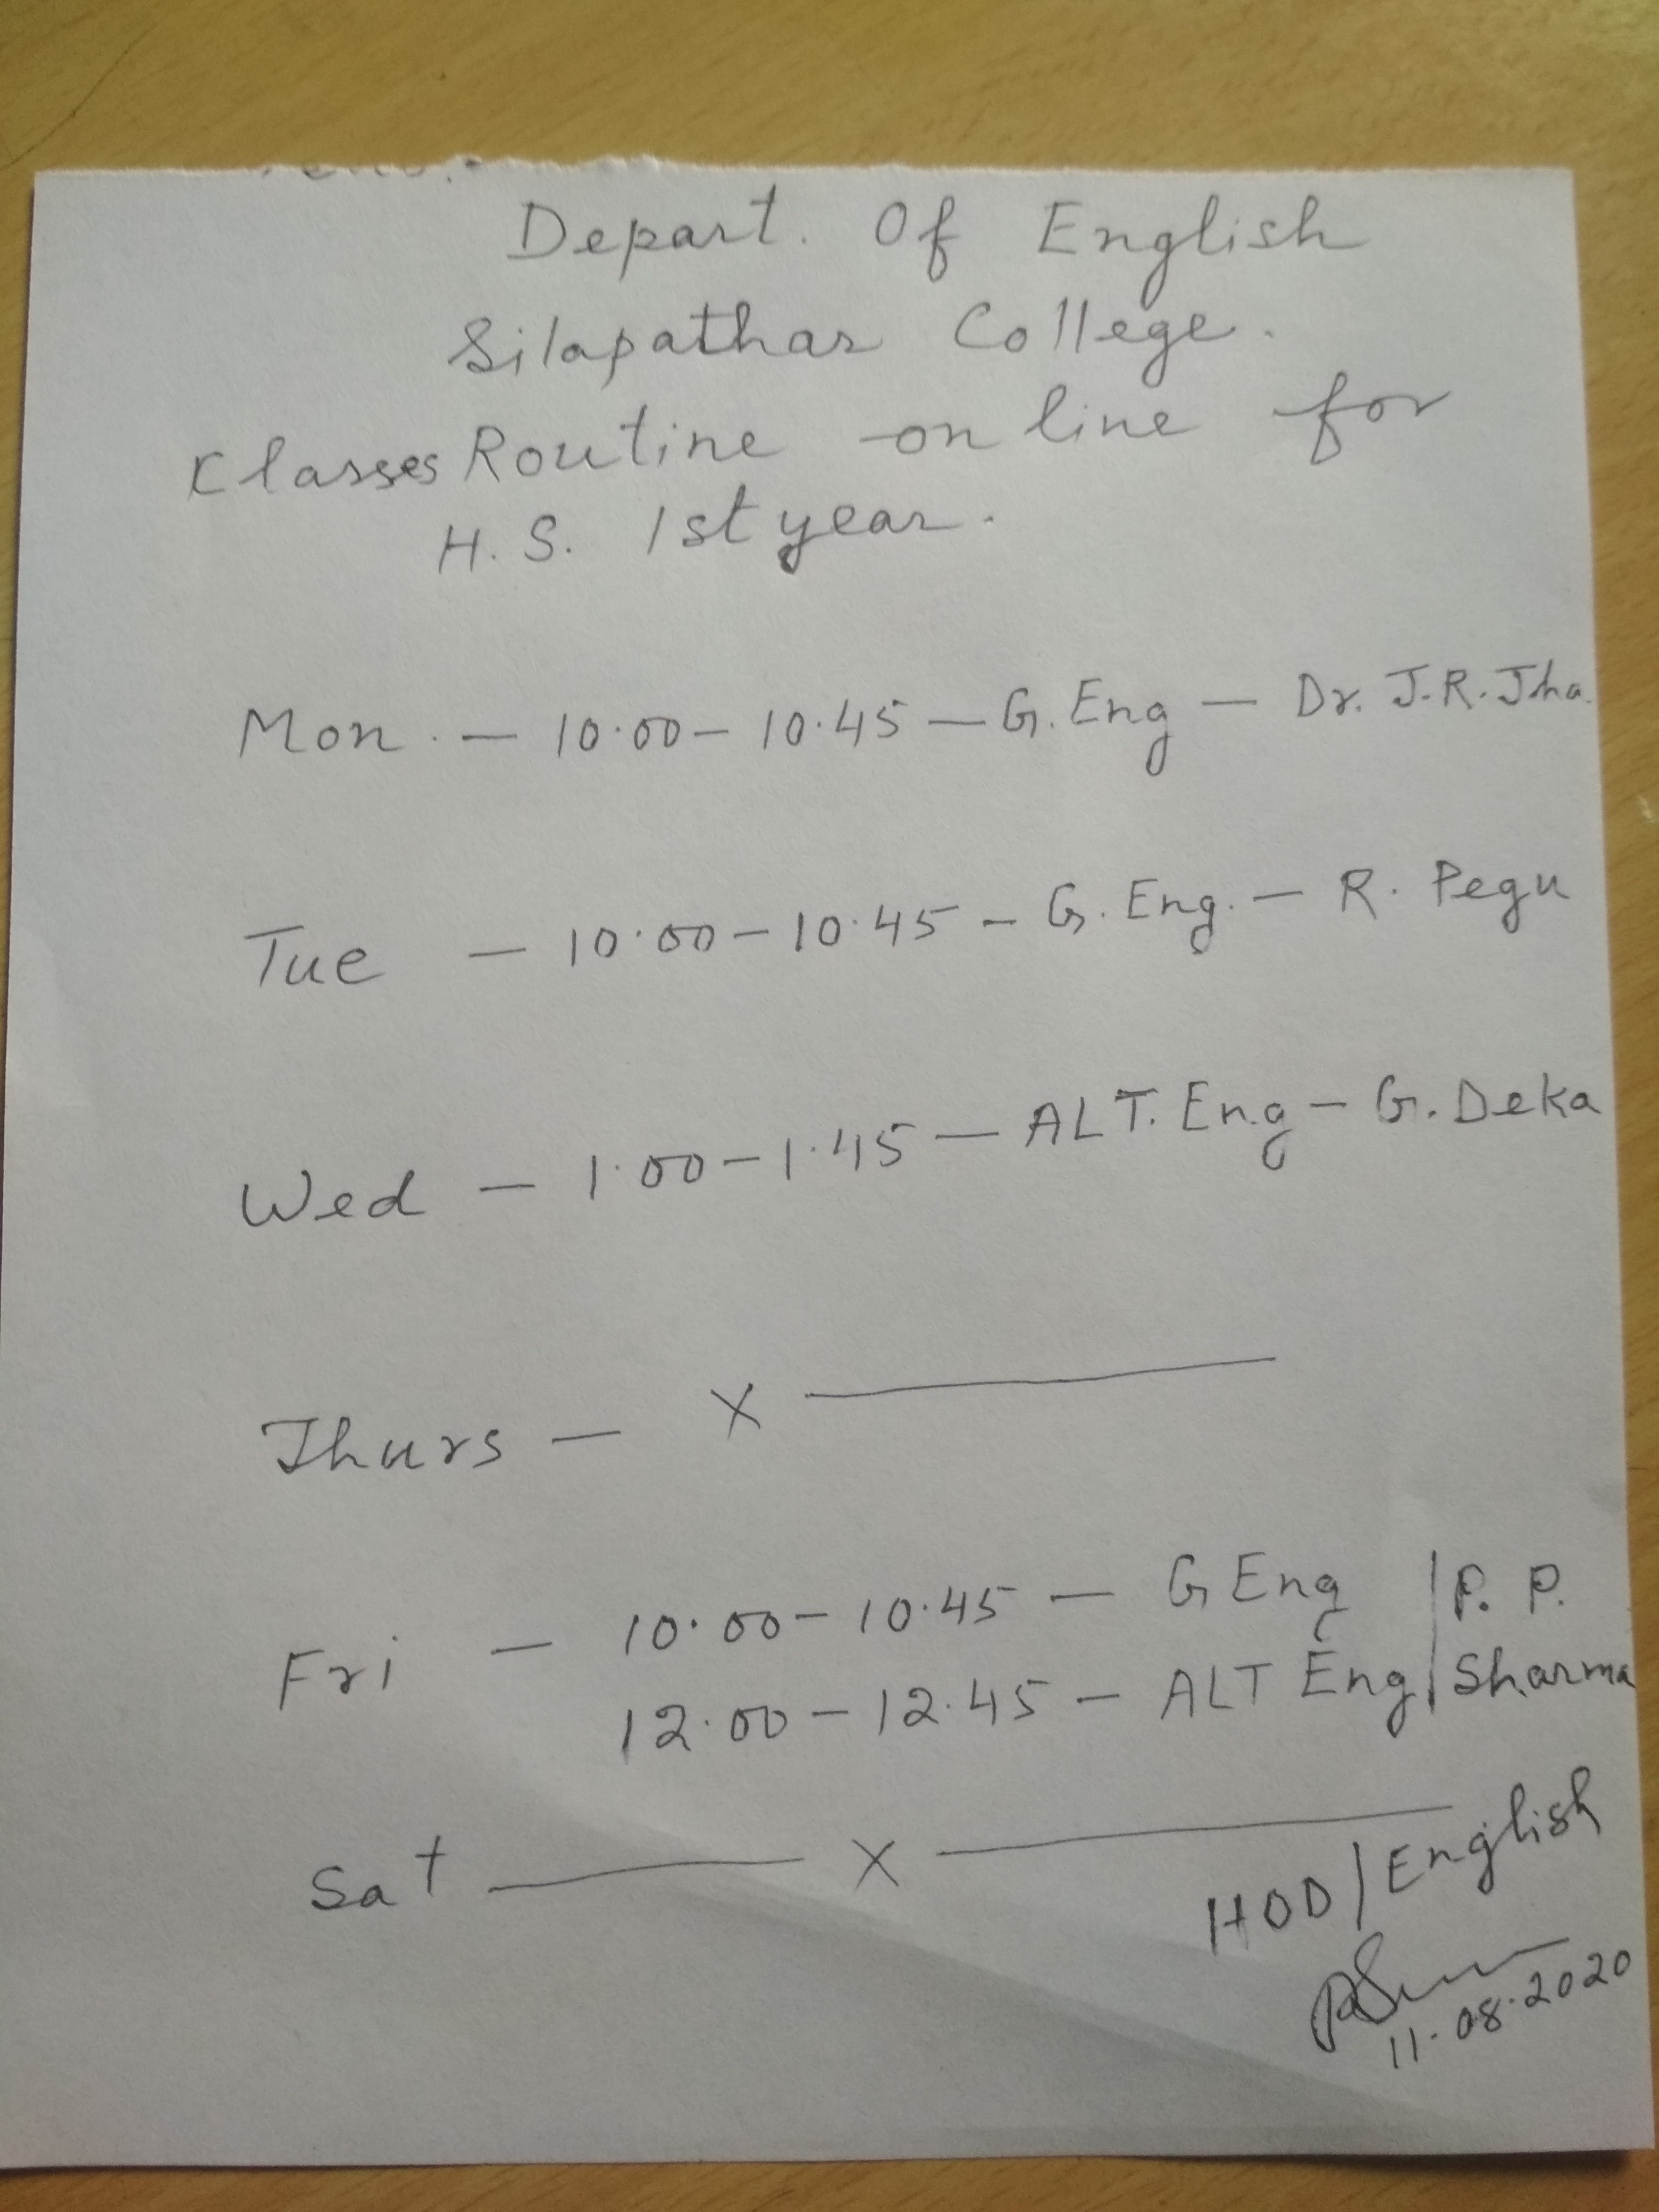 Depart. Of English
Silapathar College.
Classes Routine on line for
H. S. 1st year.
Mon. — 10.00 — 10.45 — G. Eng — Dr. J.R. Jha.
Tue — 10.00 — 10.45 — G. Eng. — R. Pegu
Wed — 1.00 — 1.45 — ALT. Eng — G. Deka
Thurs — X —
Fri — 10.00 — 10.45 — G Eng | P. P.
12.00 — 12.45 — ALT Eng | Sharma
Sat — X —
HOD/English
11.08.2020